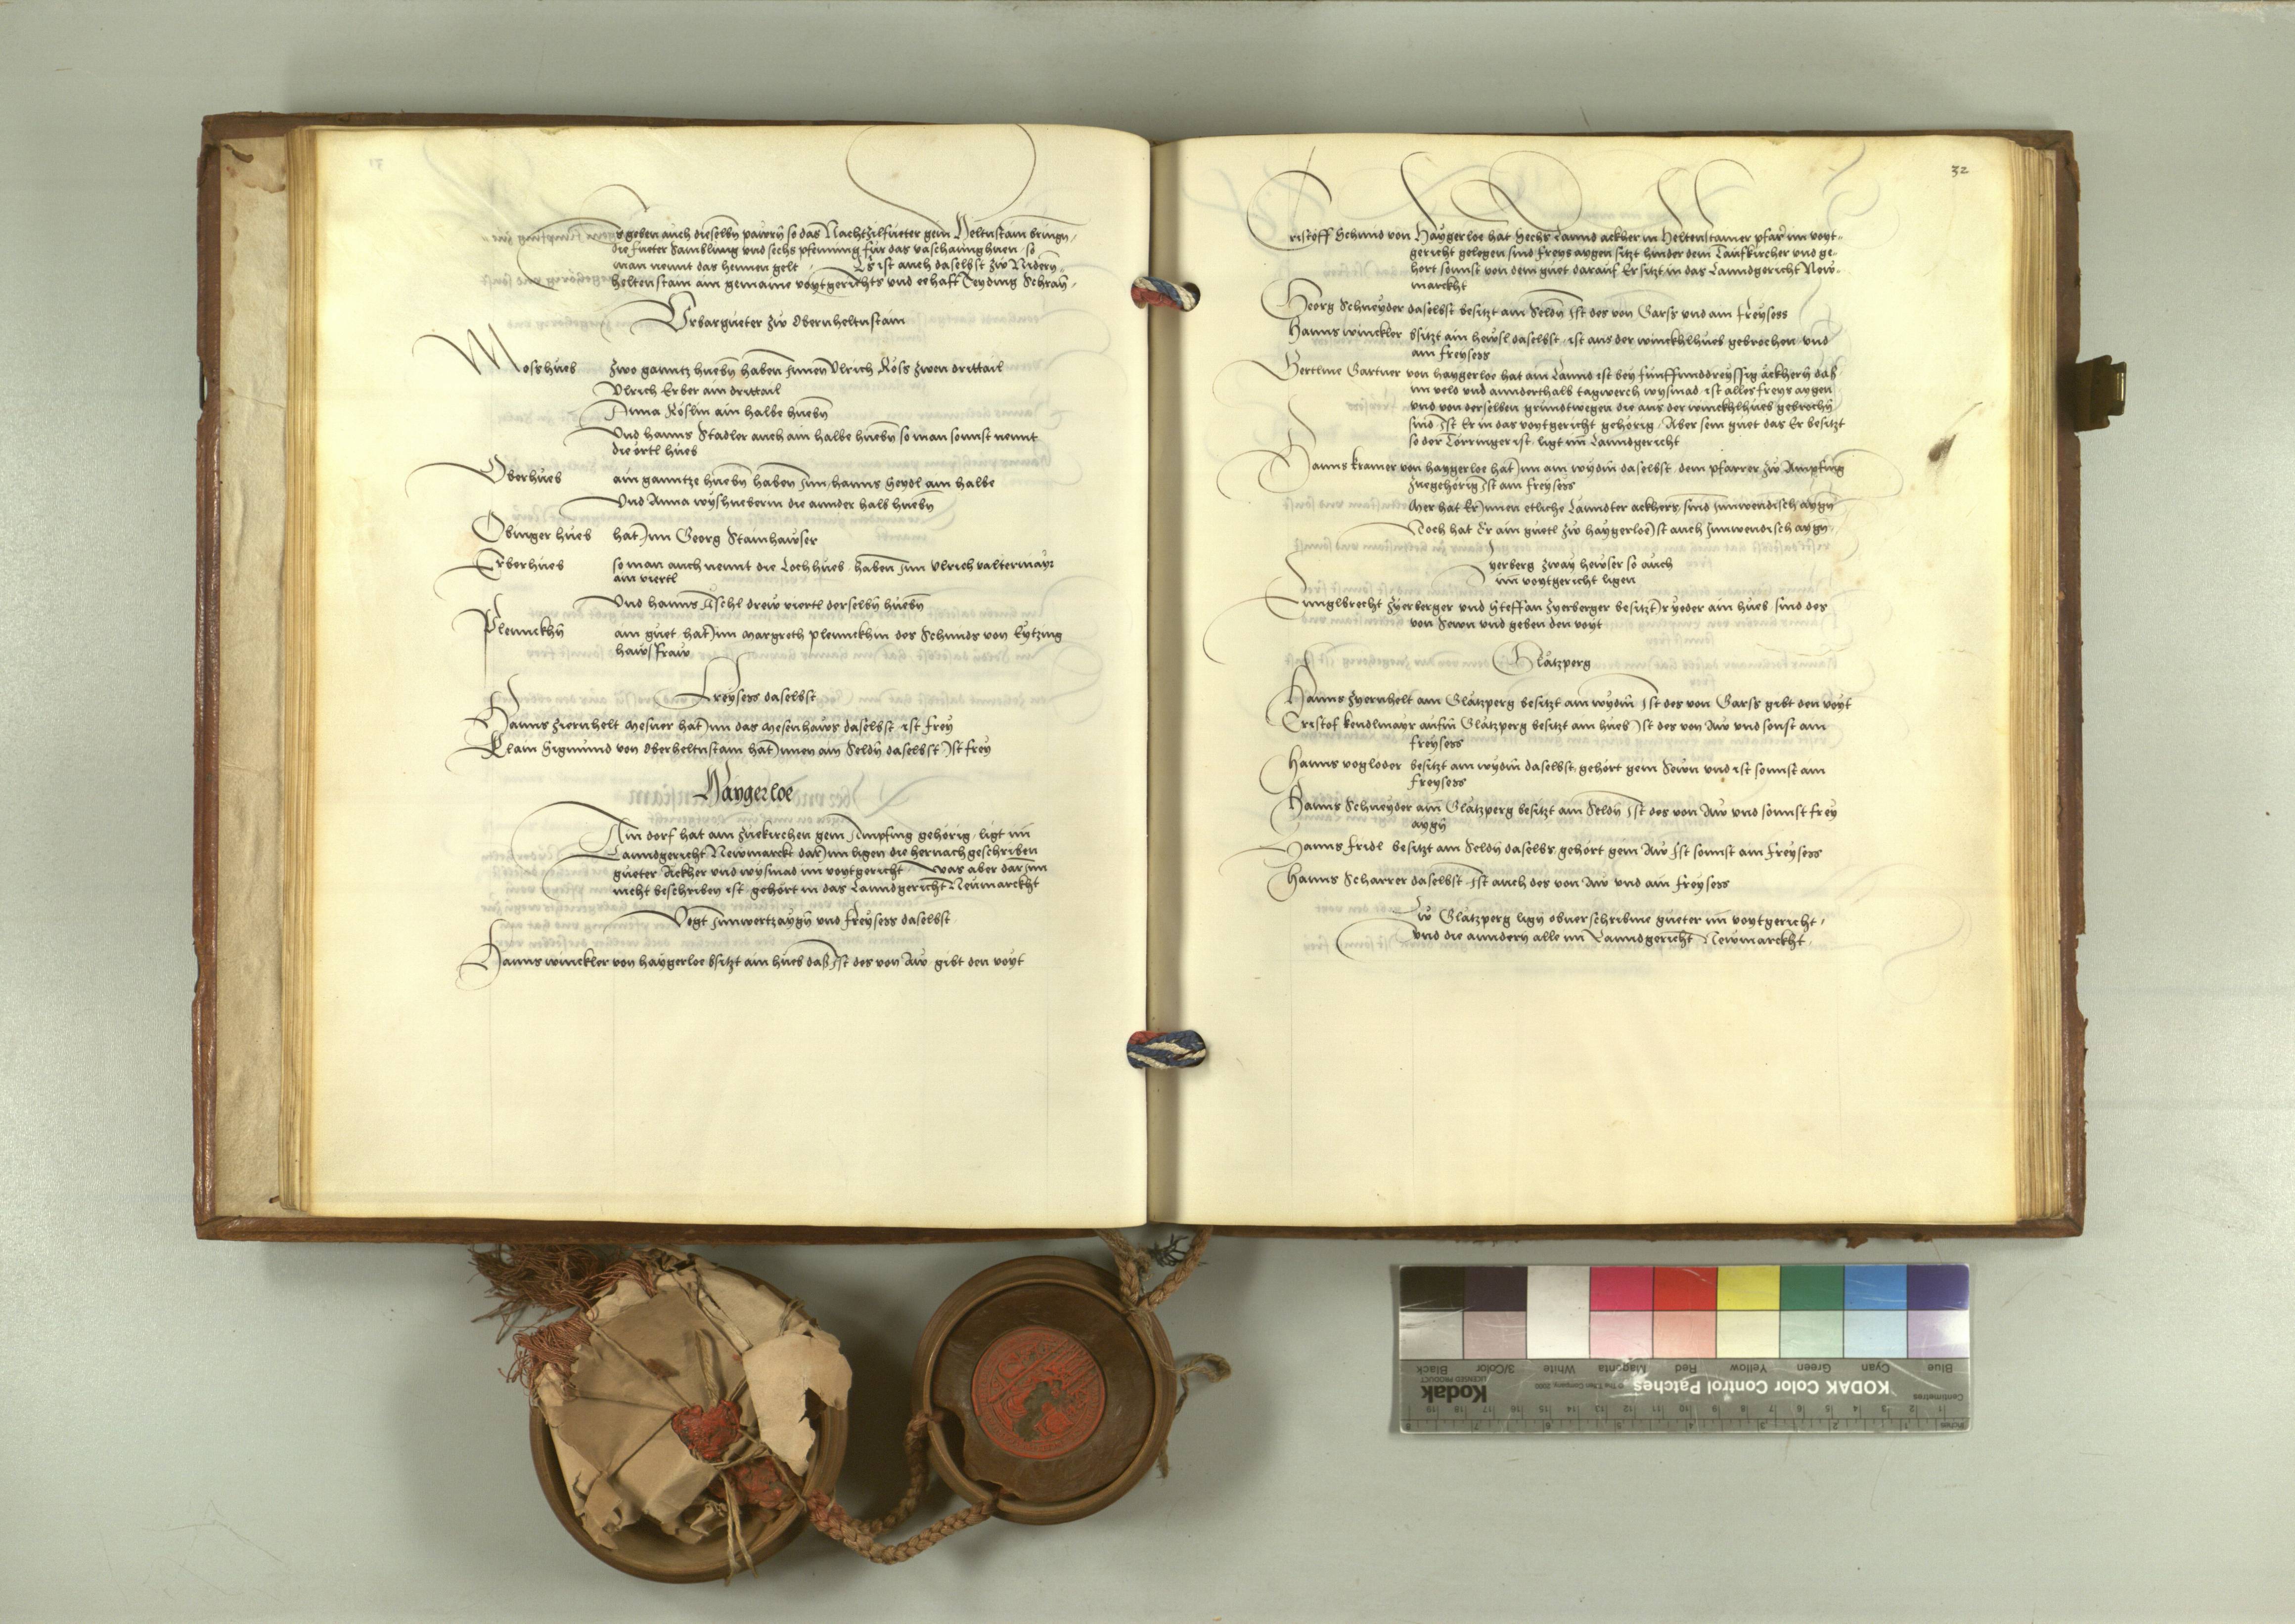 Es geben auch dieselbñ pawrñ so das Nachtzilfueter gein Heltnstain bringñ,
die fueter Sambling und sechs pfenning für das vaschannghuen, so
man nennt das hennen gelt, Es ist auch daselbst zw Nidern
heltenstain ain gemaine voytgerichts und eehaft Teyding Schran,
Urbargueter zw Obernheltnstain
Moßhueb zwo ganntz huebñ haben Innen Ulrich Röss zwen drittail
Ulrich Erber ain drittail
Anna Röslin ain halbe huebñ
Und hanns Stadler auch ain halbe huebñ so man sonnst nennt
die örtl hueb
Oberhueb ain ganntze huebñ haben Inn hanns Seydl ain halbe
Und Anna wyshueberin die annder halb huebñ
Obinger hueb hat Inn Georg Stainhawser
Erberhueb so man auch nennt die Lochhueb, haben Inn Ulrich valtermayr
ain viertl
Und hanns Aschl drew viertl derselbñ huebñ
Plennckhñ ain guet hat Inn Margreth plennckhin des Schmids von Eytzing
hawsfraw
Freysess daselbst
Hanns ziernhelt Mesner hat Inn das Mesenhaws daselbst ist frey
Klain Sigmund von Oberheltnstain hat Innen ain Seldñ daselbst Ist frey
Haygerloe
Ain dorf hat ain zuekirchen gein Ampfing gehörig, ligt im
Lanndgericht Newmarckt dar Inn ligen die hernachgeschriben
gueter Ackher und wysmad im voytgericht Was aber dar Inn
nicht beschriben ist, gehört in das Lanndgericht Neumarckht
Vogt Innwertzaygñ und freysess daselbst
Hanns winckler von haygerloe bsitzt ain hueb das Ist des von Aw gibt den voyt
32
Cristoff Schmid von Haygerloe hat Sechs Lannd ackher in Heltenstainer pfarr im voyt-
gericht gelegen sind freys aygen sitzt hinder dem Laufkircher und ge-
hort sonnst von dem guet darauf Er sitzt in das Lanndgericht New-
marckht
Georg Schneyder daselbst besitzt ain Seldñ Ist des von Garss und ain freysess
Hanns winckler bsitzt ain hewsl daselbst, ist aus der winckhlhueb gebrochen und
ain freysess
Bertlme Gartner von haygerloe hat ain Lannd ist bey fünffunddreyssig äckhern das
im veld und annderthalb tagwerch wysmad ist alles freys aygen
und von derselben grundt wegen die aus der winckhlhueb gebrochñ
sind, Ist Er in das voytgericht gehörig, Aber sein guet das Er besitzt
so der Törringer ist, ligt im Lanndgericht
Hanns kramer von haygerloe hat Inn ain wydm daselbst, dem pfarrer zw Ampfing
zuegehörig Ist ain freysess
Mer hat Er Innen etliche Lanndter ackhers, sind Innwendisch aygñ
Noch hat Er ain guetl zw haygerloe Ist auch Innwendisch aygñ
Zyerberg zway hewser so auch
im voytgericht ligen
Lienglbrecht zyerberger und Steffan zyerberger besitzt Ir yeder ain hueb, sind des
von Sewn und geben den voyt
Glätzperg
Hanns zyernhelt am Glätzperg besitzt ain wydm Ist des von Garss gibt den voyt
Cristof kendlmayr aufm Glätzperg besitzt ain hueb Ist des von Aw und sonst ain
freysess
Hanns vogloder besitzt ain wydm daselbst, gehört gein Sewn und ist sonnst ain
freysess
Hanns Schneyder am Glätzperg besitzt ain Seldñ Ist des von Aw und sonnst frey
aygñ
Hanns fridl besitzt ain Seldñ daselbs, gehört gein Aw Ist sonnst ain freysess
Hanns Scharrer daselbst, Ist auch des von Aw und ain freysess
Zw Glätzperg ligñ obuerschribne gueter im voytgericht,
und die anndern alle im Lanndgericht Newmarckht,
Black 3/Color White Magenta Red Yellow Green Cyan Blue
Kodak
LICENSED PRODUCT
KODAK Color Control Patches
Centimetres
Inches